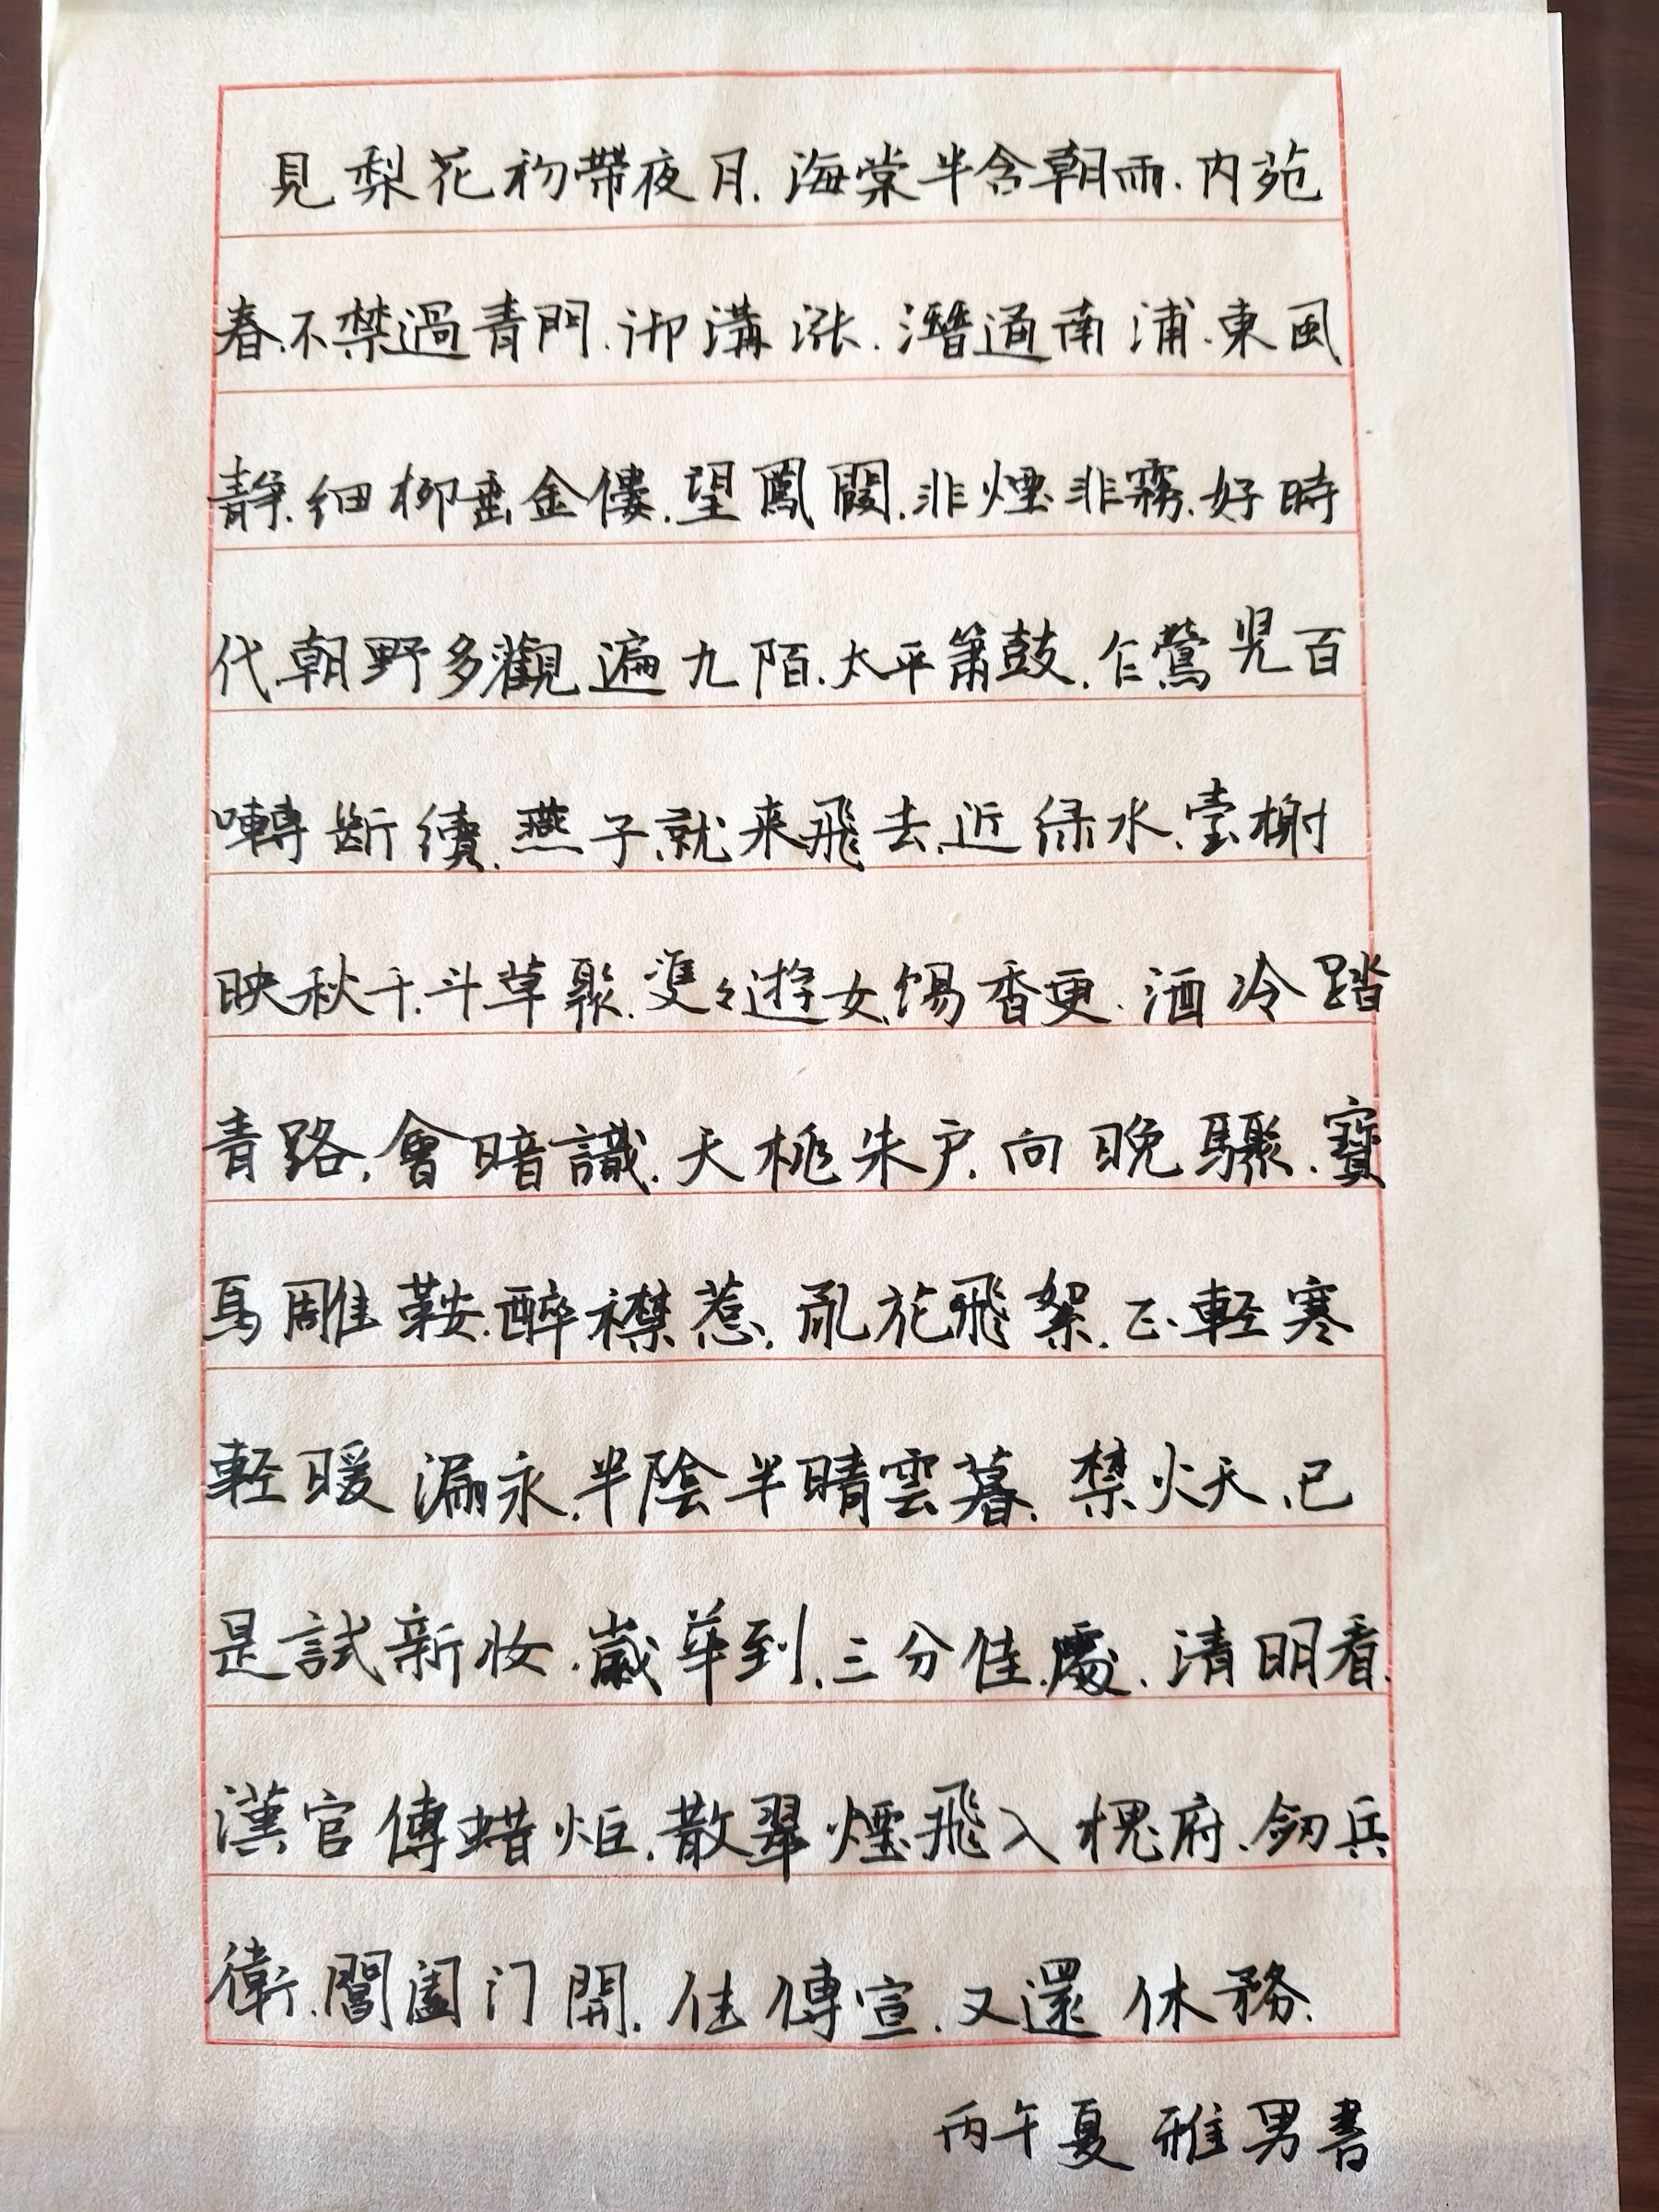 見梨花初帶夜月.海棠半含朝雨.内苑
春.不禁過青門.御溝漲.潛通南浦.東風
靜.细柳垂金僂.望鳳闕.非煙非霧.好時
代.朝野多觀.遍九陌.太平簫鼓.乍鶯児百
囀断續.燕子就来飛去.近绿水.臺榭
映秋千.斗草聚.雙々遊女.餳香更.酒冷踏
青路.會暗識.天桃朱户.向晚驟.寶
馬雕鞍.醉襟惹.亂花飛絮.正.輕寒
輕暖漏永.半陰半晴雲暮.禁火天.已
是試新妝.歲華到.三分佳處.清明看.
漢官傳蜡炬.散翠煙飛入槐府.劔兵
衛.閶闔门開.住傳宣.又還休務.
丙午夏 雅男書